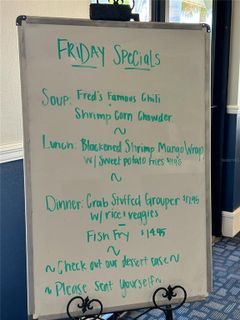 FRIDAY SPECIALS
SOUP: Fred's Famous Chili
Shrimp Corn Chowder
~
Lunch: Blackened Shrimp Mango Wrap
w/ Sweet potato fries
~
Dinner: Crab Stuffed Grouper
w/ rice + veggies
~
Fish Fry $14.95
~
~ Check out our dessert case ~
~ Please Seat Yourself ~